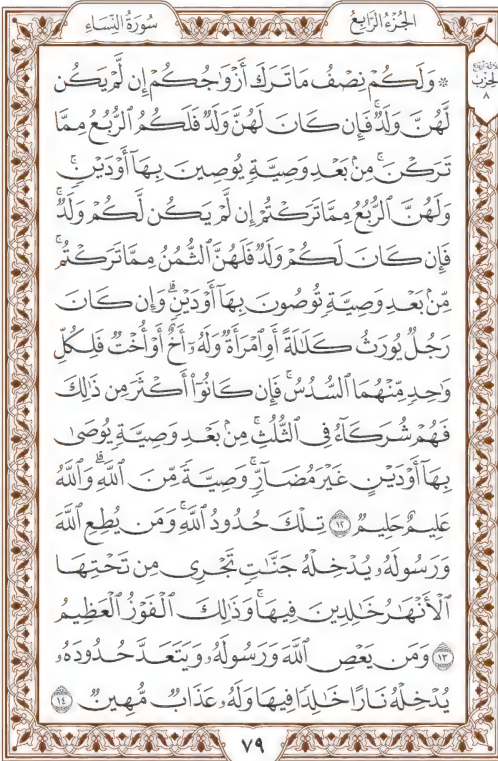 الجُزْءُ الرَّابِعُ
سُورَةُ النِّسَاءِ
۞ وَلَكُمْ نِصْفُ مَا تَرَكَ أَزْوَٰجُكُمْ إِن لَّمْ يَكُن
لَّهُنَّ وَلَدٌ ۚ فَإِن كَانَ لَهُنَّ وَلَدٌ فَلَكُمُ الرُّبُعُ مِمَّا
تَرَكْنَ ۚ مِنۢ بَعْدِ وَصِيَّةٍ يُوصِينَ بِهَآ أَوْ دَيْنٍ ۚ
وَلَهُنَّ ٱلرُّبُعُ مِمَّا تَرَكْتُمْ إِن لَّمْ يَكُن لَّكُمْ وَلَدٌ ۚ
فَإِن كَانَ لَكُمْ وَلَدٌ فَلَهُنَّ ٱلثُّمُنُ مِمَّا تَرَكْتُم ۚ
مِّنۢ بَعْدِ وَصِيَّةٍ تُوصُونَ بِهَآ أَوْ دَيْنٍ ۗ وَإِن كَانَ
رَجُلٌ يُورَثُ كَلَٰلَةً أَوِ ٱمْرَأَةٌ وَلَهُۥٓ أَخٌ أَوْ أُخْتٌ فَلِكُلِّ
وَٰحِدٍ مِّنْهُمَا ٱلسُّدُسُ ۚ فَإِن كَانُوٓا۟ أَكْثَرَ مِن ذَٰلِكَ
فَهُمْ شُرَكَآءُ فِى ٱلثُّلُثِ ۚ مِنۢ بَعْدِ وَصِيَّةٍ يُوصَىٰ
بِهَآ أَوْ دَيْنٍ غَيْرَ مُضَآرٍّ ۚ وَصِيَّةً مِّنَ ٱللَّهِ ۗ وَٱللَّهُ
عَلِيمٌ حَلِيمٌ ١٢ تِلْكَ حُدُودُ ٱللَّهِ ۚ وَمَن يُطِعِ ٱللَّهَ
وَرَسُولَهُۥ يُدْخِلْهُ جَنَّٰتٍ تَجْرِى مِن تَحْتِهَا
ٱلْأَنْهَٰرُ خَٰلِدِينَ فِيهَا ۚ وَذَٰلِكَ ٱلْفَوْزُ ٱلْعَظِيمُ
١٣ وَمَن يَعْصِ ٱللَّهَ وَرَسُولَهُۥ وَيَتَعَدَّ حُدُودَهُۥ
يُدْخِلْهُ نَارًا خَٰلِدًا فِيهَا وَلَهُۥ عَذَابٌ مُّهِينٌ ١٤
الحِزْب
٨
٧٩